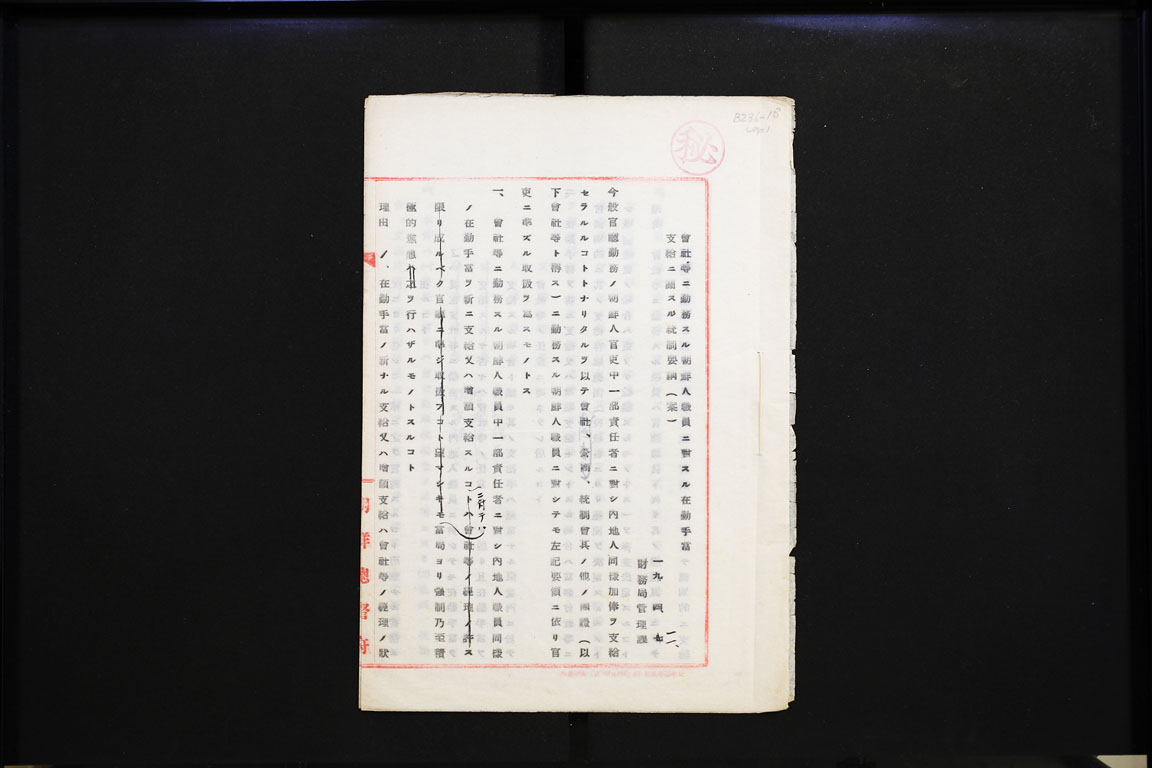 B236-15
秘
會社等ニ勤務スル朝鮮人職員ニ對スル在勤手當
支給ニ關スル統制要綱(案)
一九、四、七
一一、
財務局管理課
今般官廳勤務ノ朝鮮人官吏中一部責任者ニ對シ內地人同樣加俸ヲ支給
セラルルコトトナリタルヲ以テ會社、營團、統制會其ノ他ノ團體(以
下會社等ト稱ス)ニ勤務スル朝鮮人職員ニ對シテモ左記要領ニ依リ官
吏ニ準ズル取扱ヲ爲スモノトス
一、會社等ニ勤務スル朝鮮人職員中一部責任者ニ對シ內地人職員同樣
ノ在勤手當ヲ新ニ支給又ハ增額支給スルコトハ會社等ノ經理ノ許ス
ニ付テハ
限リ成ルベク官吏ニ準ジ取扱フコト望マシキモ當局ヨリ强制乃至積
極的慫慂ヲ行ハザルモノトスルコト
理由 ノ、在勤手當ノ新ナル支給又ハ增額支給ハ會社等ノ經理ノ狀
朝鮮總督府